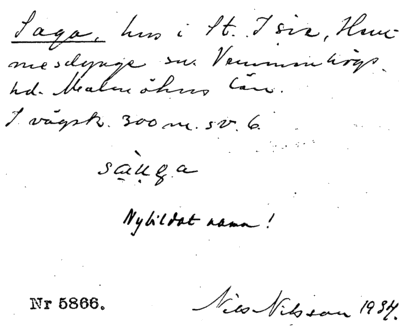 Saga, hus i St. Isie, Hem-
mesdynge sn Vemmenhögs
hd. Malmöhus län.
I vägsk. 300 m. sv. 6.
Nybildat namn!
Nr 5866. Nils Nilsson 1934.